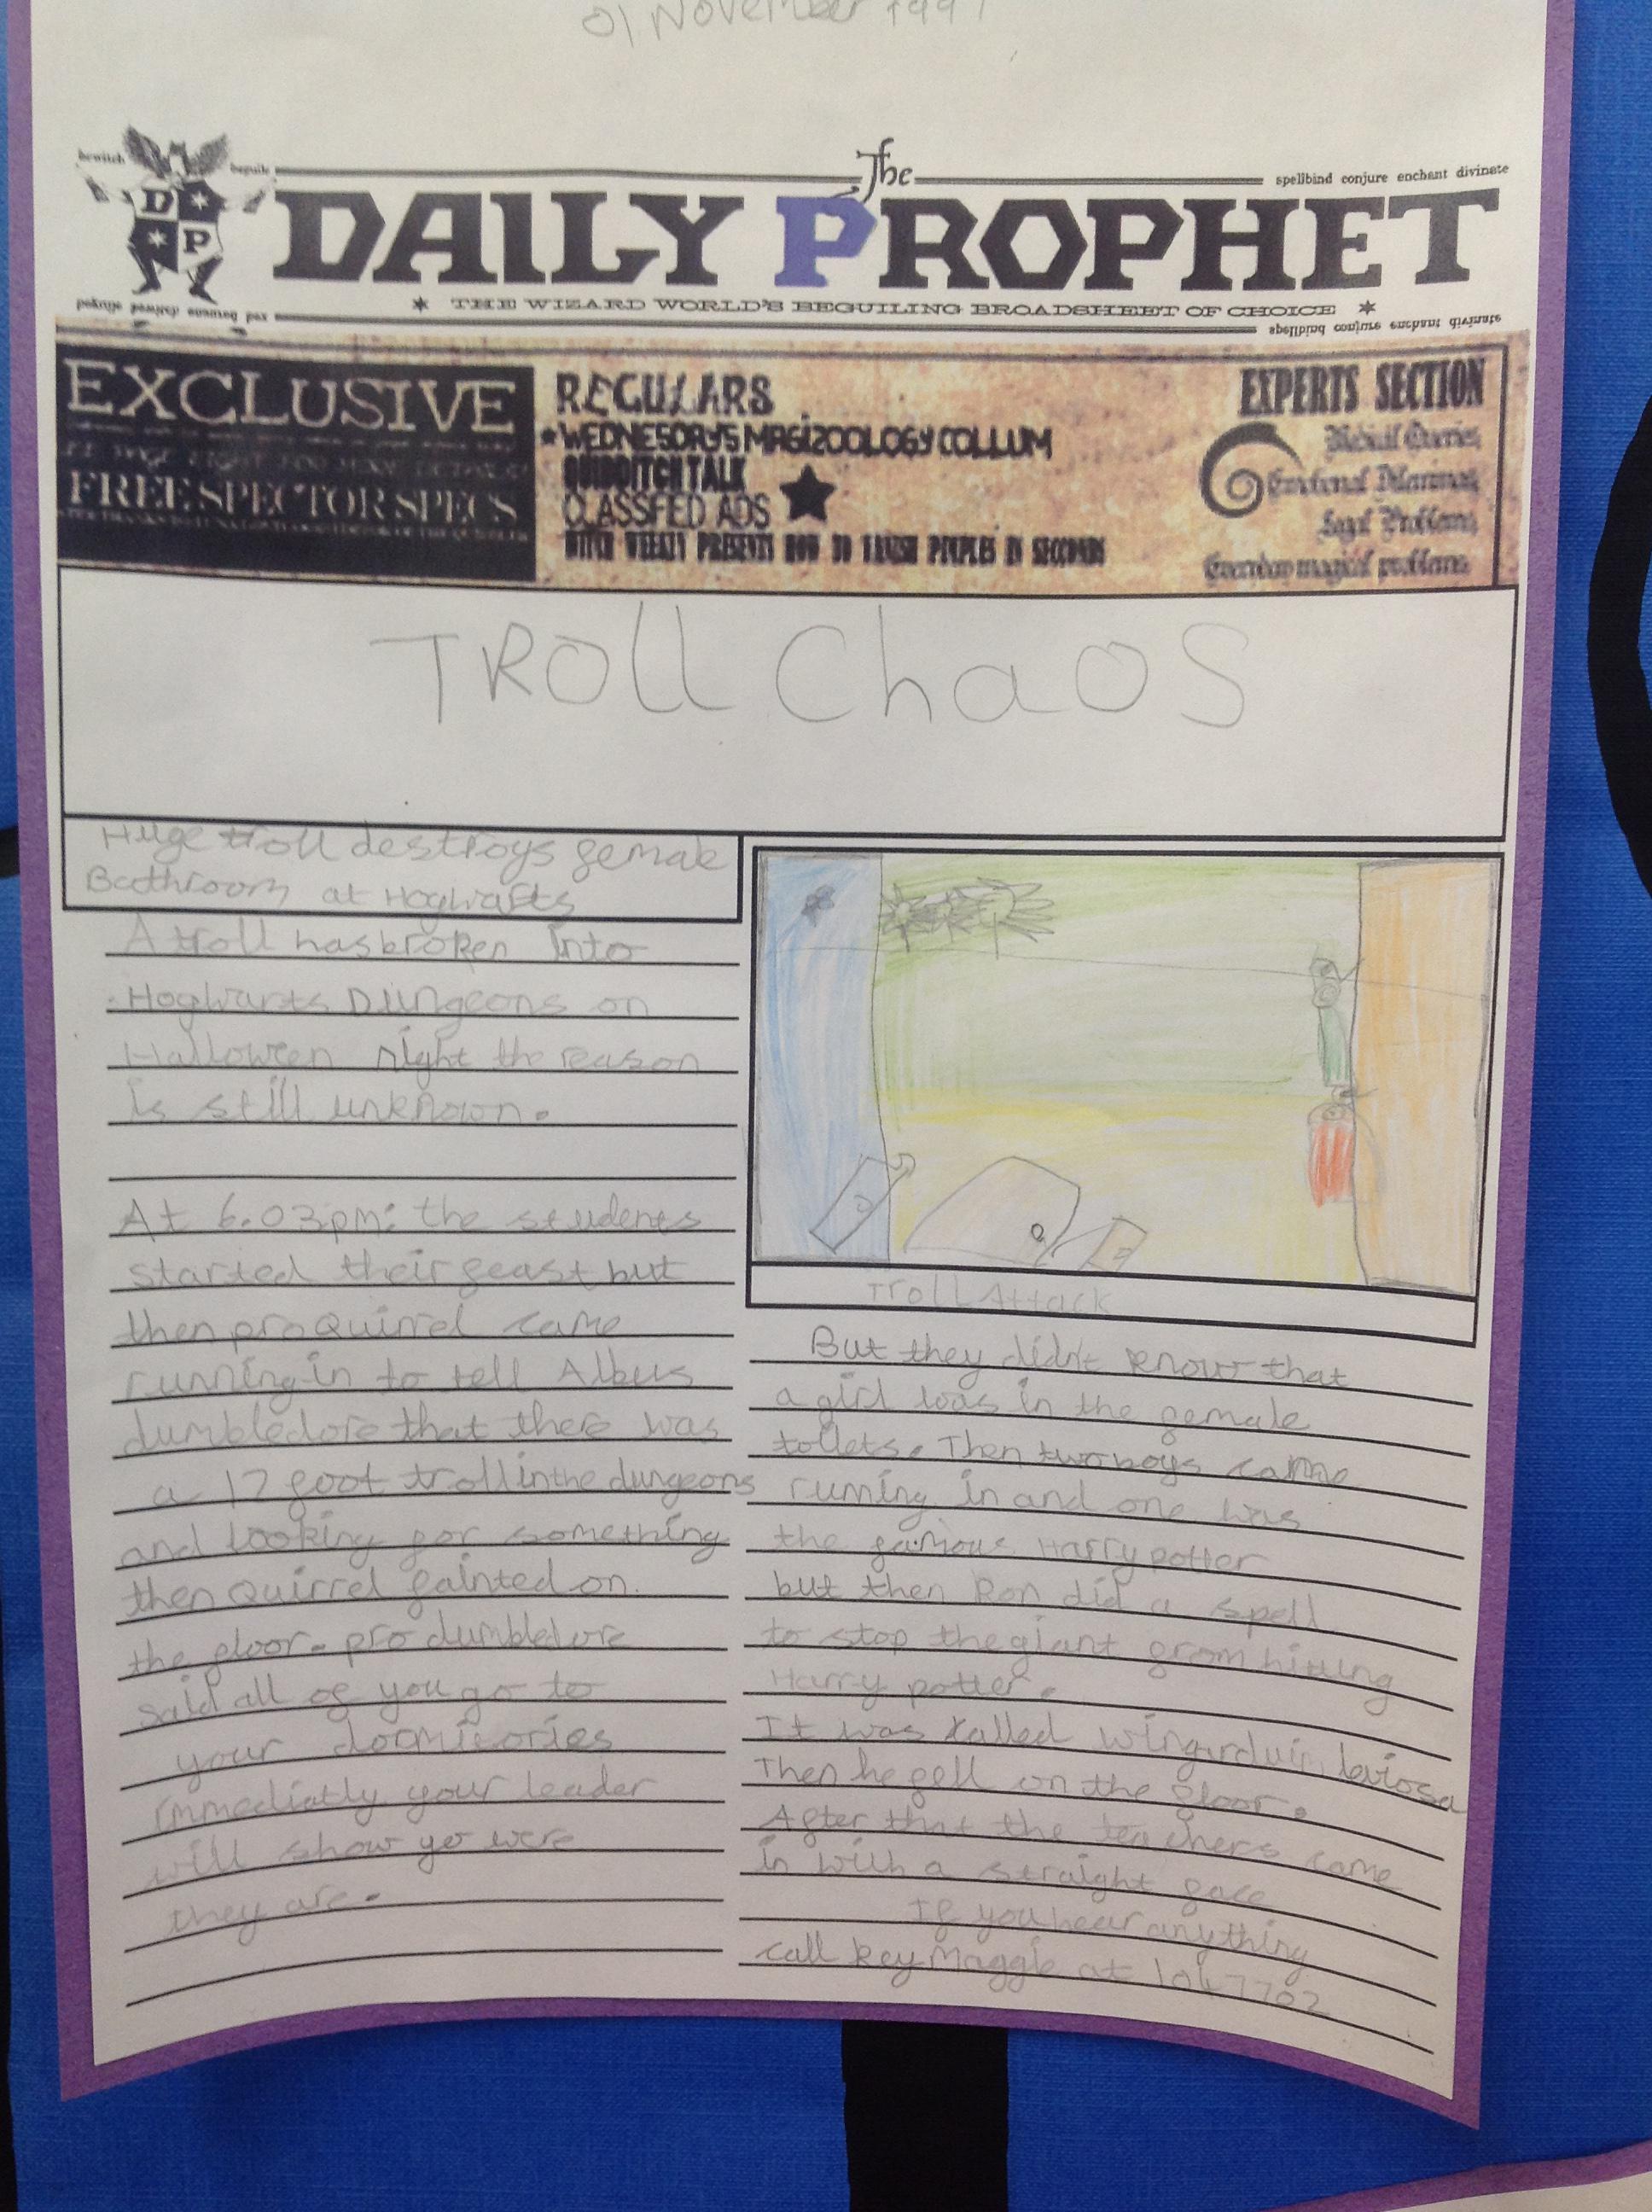 01 November 1991
bewitch
beguile
D
P
The
spellbind conjure enchant divinate
DAILY PROPHET
★ THE WIZARD WORLD'S BEGUILING BROADSHEET OF CHOICE ★
spellbind conjure enchant divinate
EXCLUSIVE
FREE SPECTOR SPECS
REGULARS
★WEDNESDAY'S MAGIZOOLOGY COLLUM
QUIDDITCH TALK
CLASSFED ADS ★
WITCH WEEKLY PRESENTS HOW TO VANISH PIMPLES IN SECONDS
EXPERTS SECTION
Medical Queries
Emotional Dilemmas
Legal Problems
Everyday magical problems
TROll ChaOS
Huge troll destroys female
Bathroom at Hogwarts
A troll has broken into
Hogwarts Dungeons on
Halloween night the reason
is still unknown.
At 6.03pm: the students
started their feast but
then pro Quirrel came
running in to tell Albus
dumbledore that there was
a 12 foot troll in the dungeons
and looking for something
then Quirrel fainted on
the floor. pro dumbledore
said all of you go to
your doormitories
immediatly your leader
will show yo were
they are.
Troll Attack
But they didn't know that
a girl was in the female
toilets. Then two boys came
running in and one was
the famous Harry potter
but then Ron did a spell
to stop the giant from hitting
Harry potter.
It was called wingarduim leviosa
Then he fell on the floor.
After that the teachers came
in with a straight face
If you hear anything
call key Maggie at 1047702